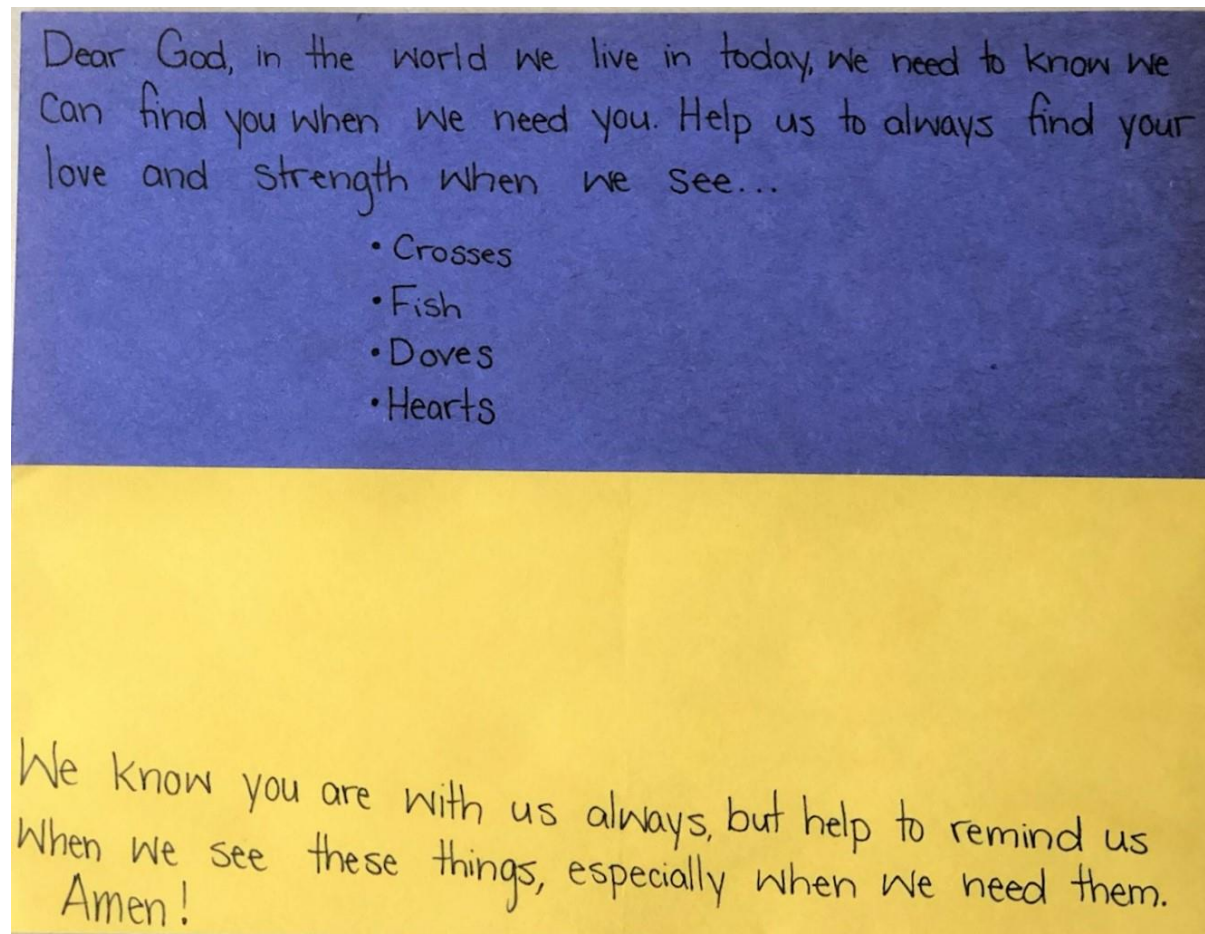 Dear God, in the world we live in today, we need to know we
can find you when we need you. Help us to always find your
love and strength when we see...
• Crosses
• Fish
• Doves
• Hearts
We know you are with us always, but help to remind us
when we see these things, especially when we need them.
Amen!